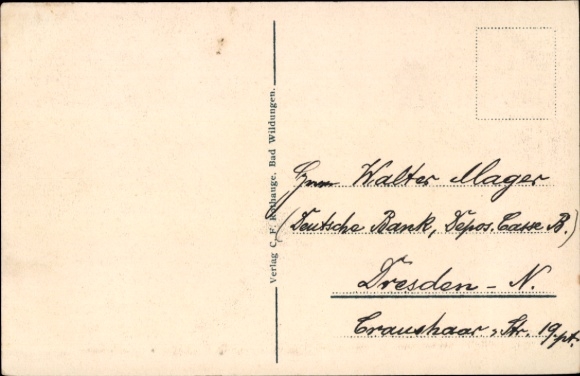 Verlag C. F. Kithauge, Bad Wildungen.
Herrn Walter Mager
(Deutsche Bank, Depos. Casse B.)
Dresden - N.
Traushaar - Str. 19 pt.